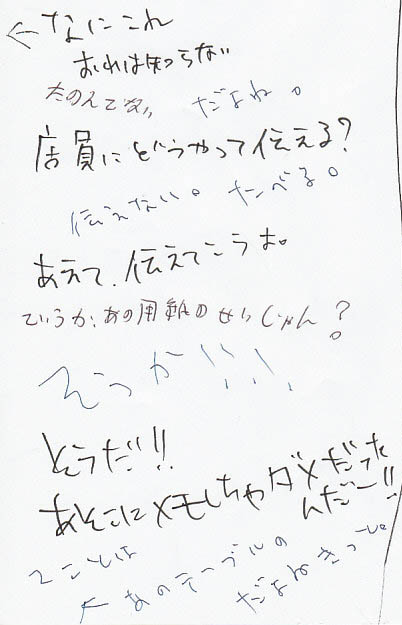 ←なにこれ
おれは知らない
たのんでない だよね。
店員にどうやって伝える?
伝えない。 たべる。
あえて、伝えてこうよ。
ていうか、あの用紙のせいじゃん?
そうか!!!
そうだ!!
あそこにメモしちゃダメだった
んだー!!
ってことは
←あのテーブルの
だよねきっと。